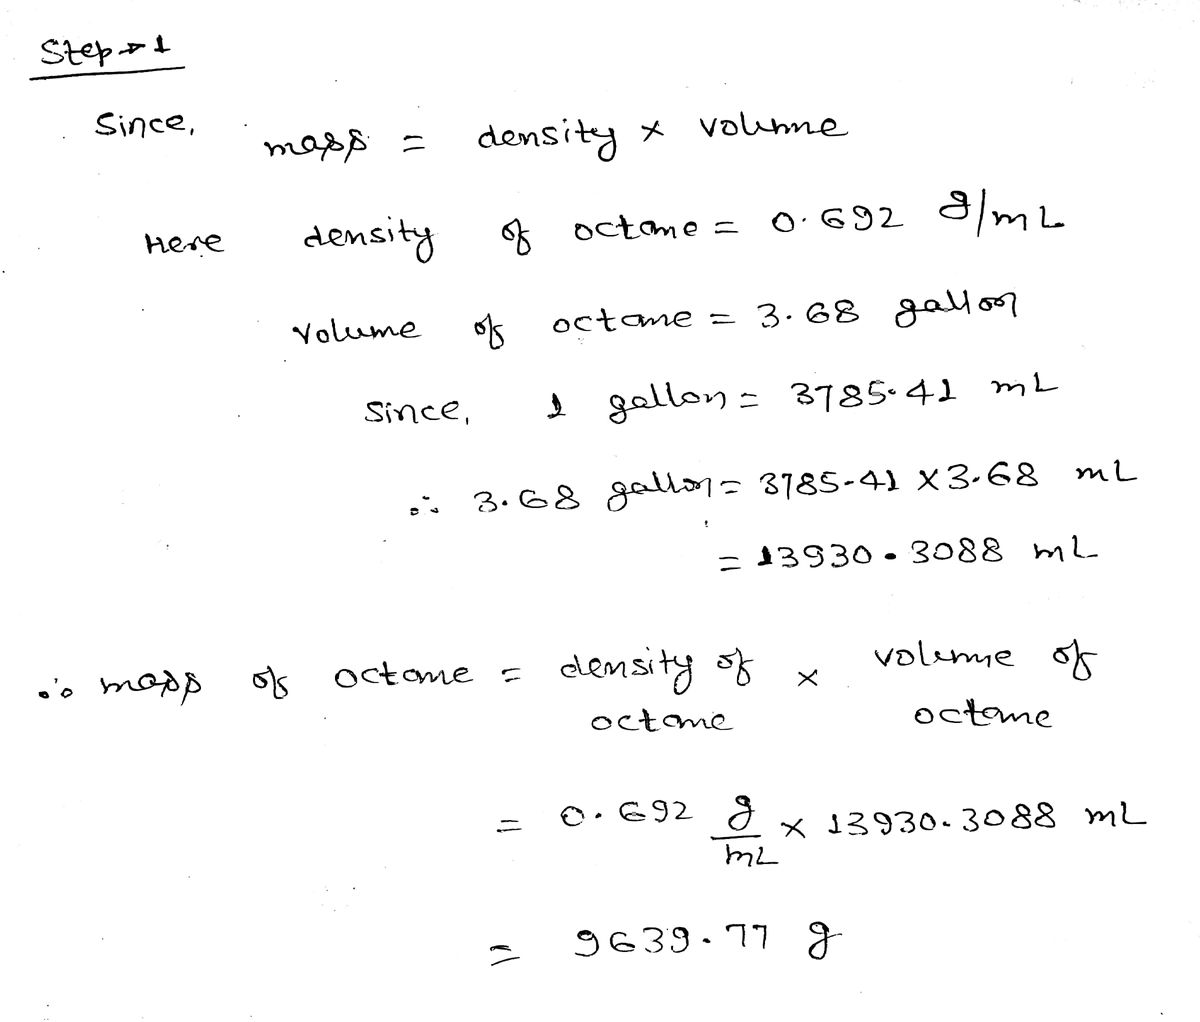 Step → 1
Since, mass = density × volume
Here density of octane = 0.692 g/mL
volume of octane = 3.68 gallon
Since, 1 gallon = 3785.41 mL
∴ 3.68 gallon = 3785.41 × 3.68 mL
= 13930.3088 mL
∴ mass of octane = density of octane × volume of octane
= 0.692 g/mL × 13930.3088 mL
= 9639.77 g